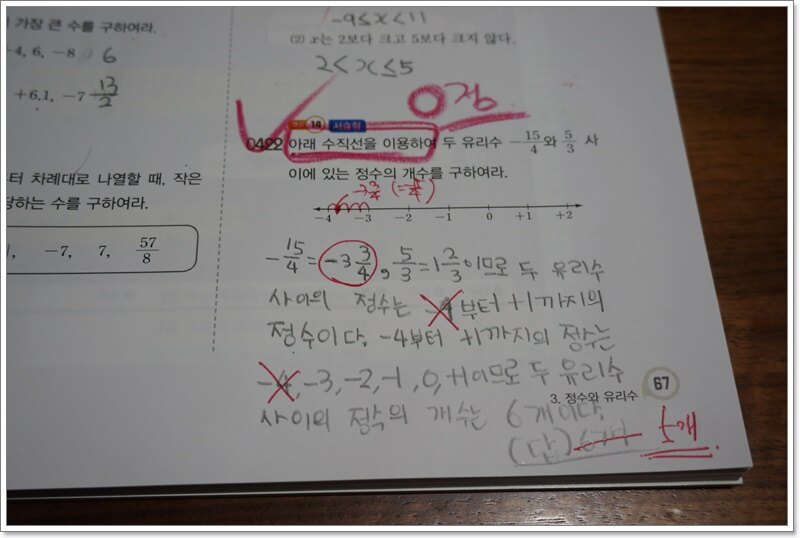 가장 큰 수를 구하여라.
4, 6, -8 6
+6.1, -7 13/2
터 차례대로 나열할 때, 작은
당하는 수를 구하여라.
-7, 7, 57/8
-9≤x<11
(2) x는 2보다 크고 5보다 크지 않다.
2<x≤5
0점
14 서술형
0422 아래 수직선을 이용하여 두 유리수 -15/4와 5/3 사
이에 있는 정수의 개수를 구하여라.
-4 -3 -2 -1 0 +1 +2
-15/4=-3 3/4, 5/3=1 2/3이므로 두 유리수
사이의 정수는 -4부터 +1까지의
정수이다. -4부터 +1까지의 정수는
-4, -3, -2, -1, 0, +1이므로 두 유리수
3. 정수와 유리수 67
사이의 정수의 개수는 6개이다.
(답) 5개